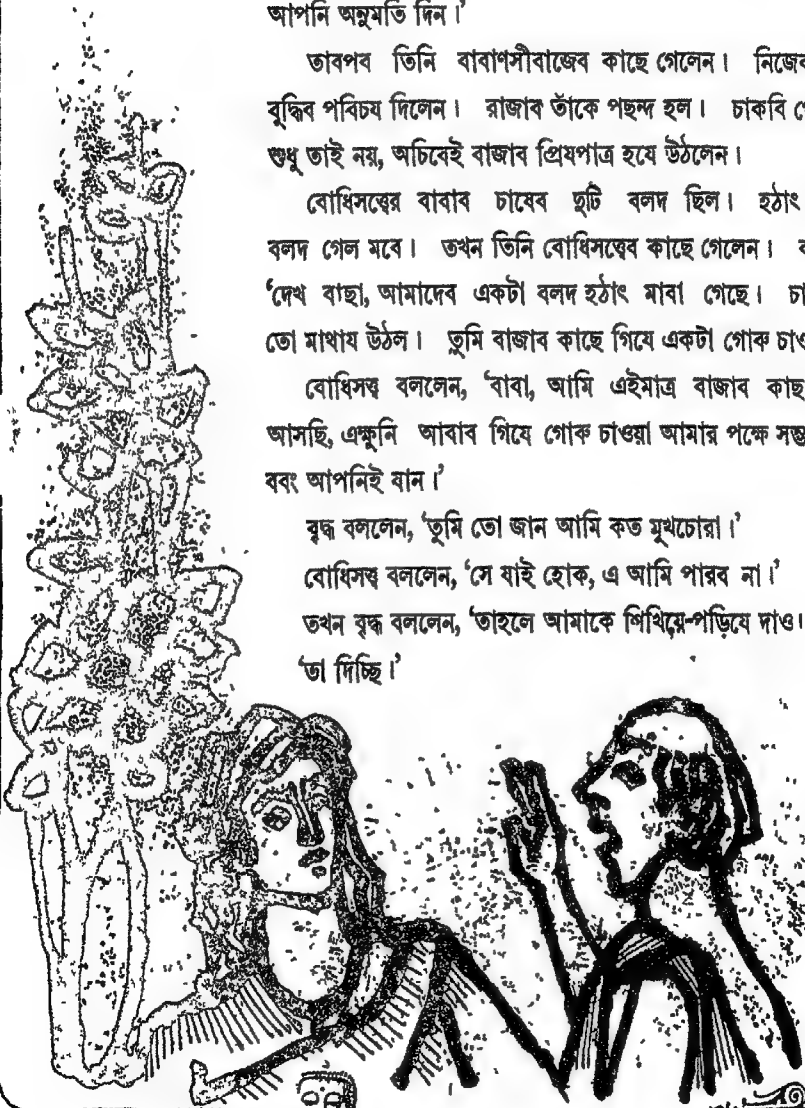 আপনি অনুমতি দিন।’
তাবপব তিনি বাবাণসীবাজেব কাছে গেলেন। নিজেব
বুদ্ধিব পবিচয দিলেন। রাজাব তাঁকে পছন্দ হল। চাকবি
শুধু তাই নয়, অচিবেই বাজাব প্রিযপাত্র হযে উঠলেন।
বোধিসত্ত্বের বাবাব চাষেব দুটি বলদ ছিল। হঠাৎ
বলদ গেল মবে। তখন তিনি বোধিসত্ত্বেব কাছে গেলেন।
‘দেখ বাছা, আমাদেব একটা বলদ হঠাৎ মাবা গেছে।
তো মাথায উঠল। তুমি বাজাব কাছে গিযে একটা গোরু
বোধিসত্ত্ব বললেন, ‘বাবা, আমি এইমাত্র বাজাব কাছ
আসছি, এক্ষুনি আবাব গিযে গোরু চাওয়া আমার পক্ষে
ববং আপনিই যান।’
বৃদ্ধ বললেন, ‘তুমি তো জান আমি কত মুখচোরা।’
বোধিসত্ত্ব বললেন, ‘সে যাই হোক, এ আমি পারব না।’
তখন বৃদ্ধ বললেন, ‘তাহলে আমাকে শিখিয়ে-পড়িযে দাও।
‘তা দিচ্ছি।’